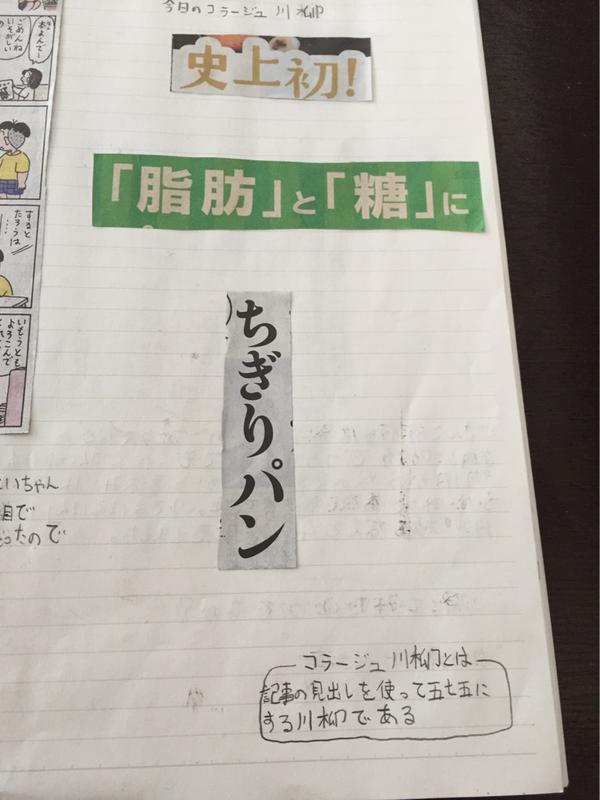 今日のコラージュ川柳
史上初!
「脂肪」と「糖」に
ちぎりパン
コラージュ川柳とは
記事の見出しを使って五七五に
する川柳である
ごめんね
いそがしい
すると
たろうは
……
いもうとも
よろこんで
いちゃん
目で
だったので